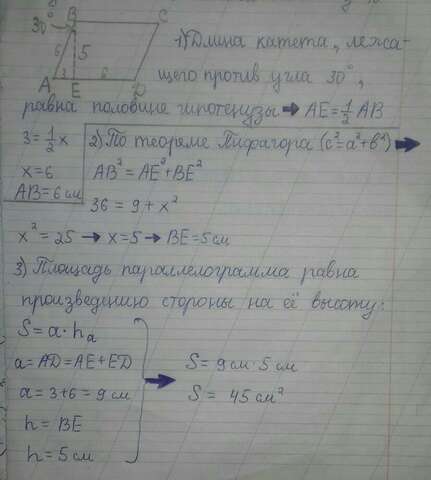 B C
30°
6 5
A 3 E 6 D
1) Длина катета, лежа-
щего против угла 30°,
равна половине гипотенузы → AE = 1/2 AB
3 = 1/2 x
x = 6
AB = 6 см
2) По теореме Пифагора (c² = a² + b²) →
AB² = AE² + BE²
36 = 9 + x²
x² = 25 → x = 5 → BE = 5 см
3) Площадь параллелограмма равна
произведению стороны на её высоту:
S = a · hₐ
a = AD = AE + ED
a = 3 + 6 = 9 см
h = BE
h = 5 см
→ S = 9 см · 5 см
S = 45 см²